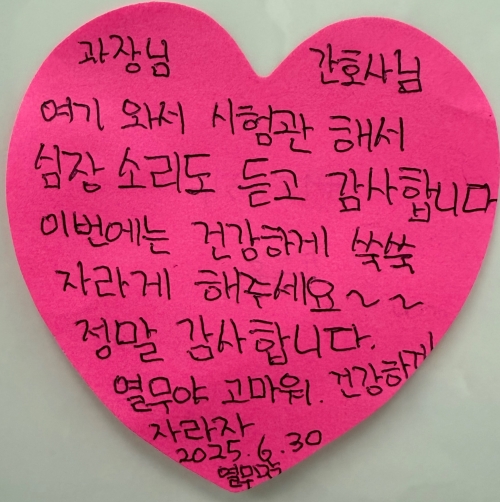 과장님 간호사님
여기 와서 시험관 해서
심장 소리도 듣고 감사합니다
이번에는 건강하게 쑥쑥
자라게 해주세요~~
정말 감사합니다.
열무야 고마워. 건강하게
자라자
2025.6.30